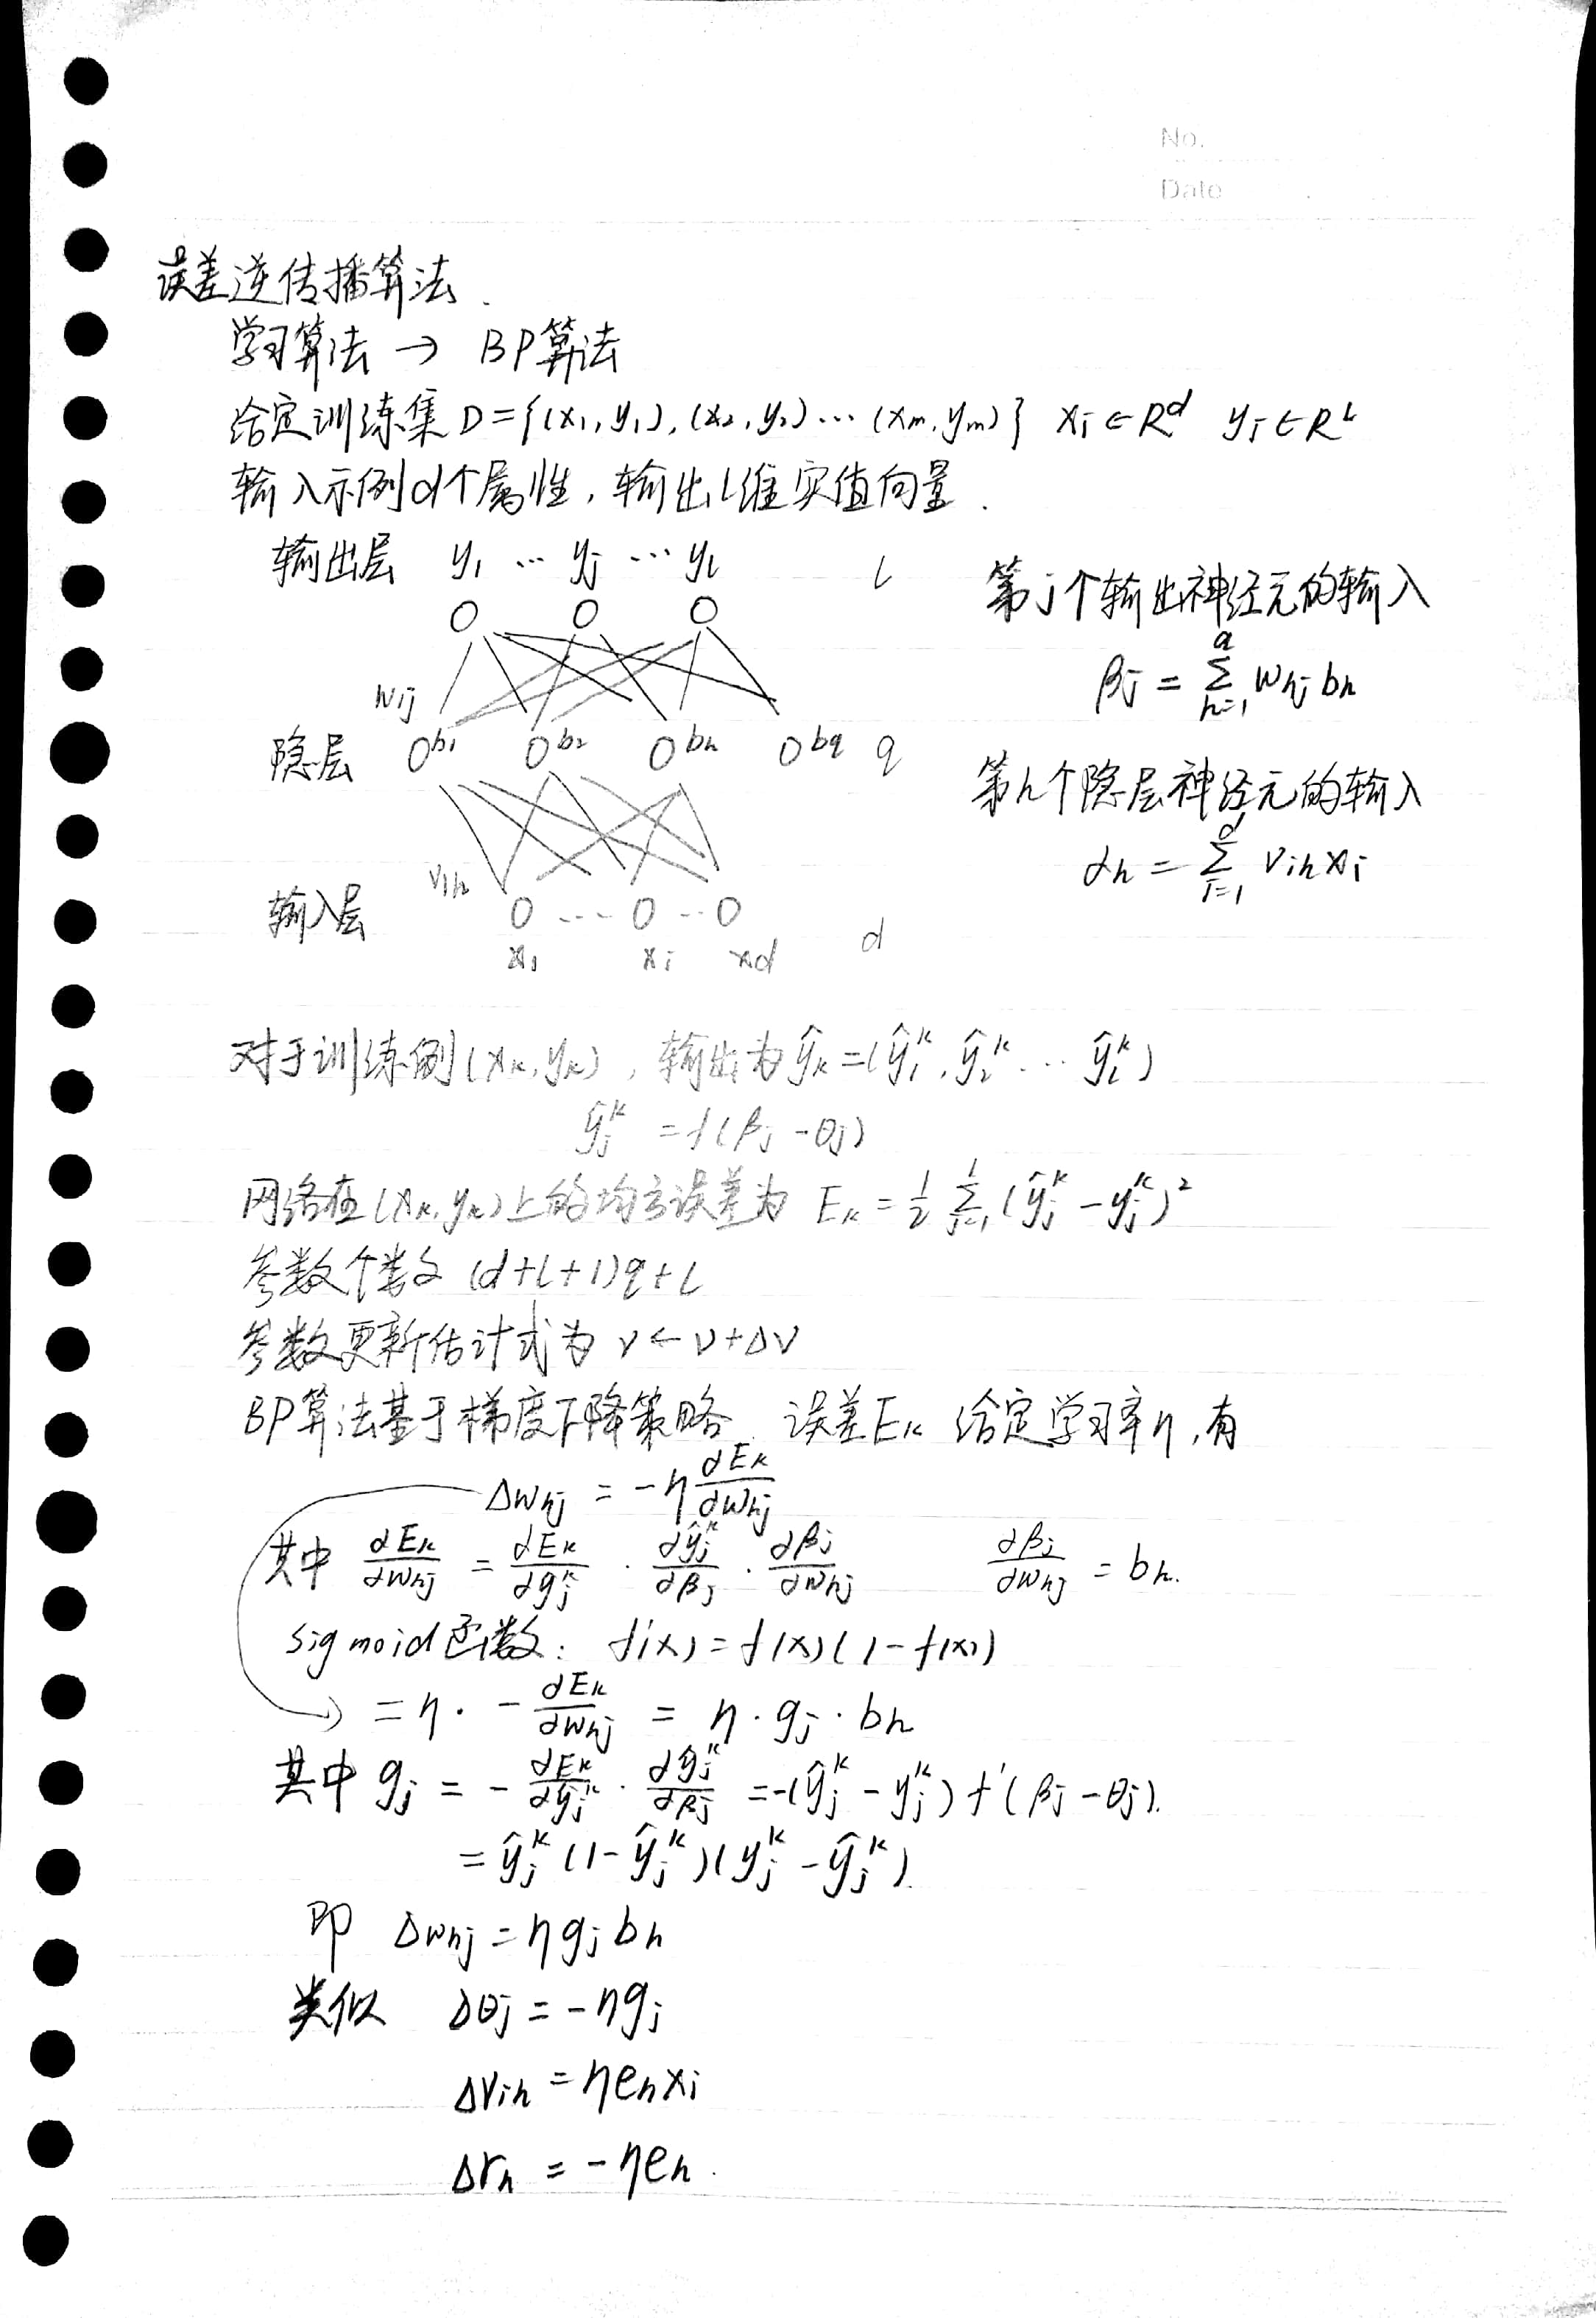 No.
Date
误差逆传播算法.
学习算法 → BP算法
给定训练集 D={(x₁,y₁),(x₂,y₂)…(xm,ym)} xi∈R^d yi∈R^l
输入示例d个属性,输出l维实值向量.
输出层 y₁ … yj … yl l
第j个输出神经元的输入
βj = Σ_{h=1}^{q} whj bh
wij
隐层 b₁ b₂ bh bq q
第h个隐层神经元的输入
αh = Σ_{i=1}^{d} vih xi
v1h
输入层 … … d
x₁ xi xd
对于训练例(xk,yk),输出为ŷk=(ŷ₁^k,ŷ₂^k…ŷl^k)
ŷj^k =f(βj-θj)
网络在(xk,yk)上的均方误差为 Ek=1/2 Σ_{j=1}^{l}(ŷj^k-yj^k)²
参数个数 (d+l+1)q+l
参数更新估计式为 v←v+Δv
BP算法基于梯度下降策略.误差Ek 给定学习率η,有
Δwhj = -η ∂Ek/∂whj
其中 ∂Ek/∂whj = ∂Ek/∂ŷj^k · ∂ŷj^k/∂βj · ∂βj/∂whj ∂βj/∂whj = bh.
sigmoid函数: f'(x)=f(x)(1-f(x))
=η· -∂Ek/∂whj = η·gj·bh
其中 gj = -∂Ek/∂ŷj^k · ∂ŷj^k/∂βj =-(ŷj^k-yj^k)f'(βj-θj).
=ŷj^k(1-ŷj^k)(yj^k-ŷj^k).
即 Δwhj=ηgjbh
类似 Δθj=-ηgj
Δvih=ηehxi
Δrh = -ηeh.